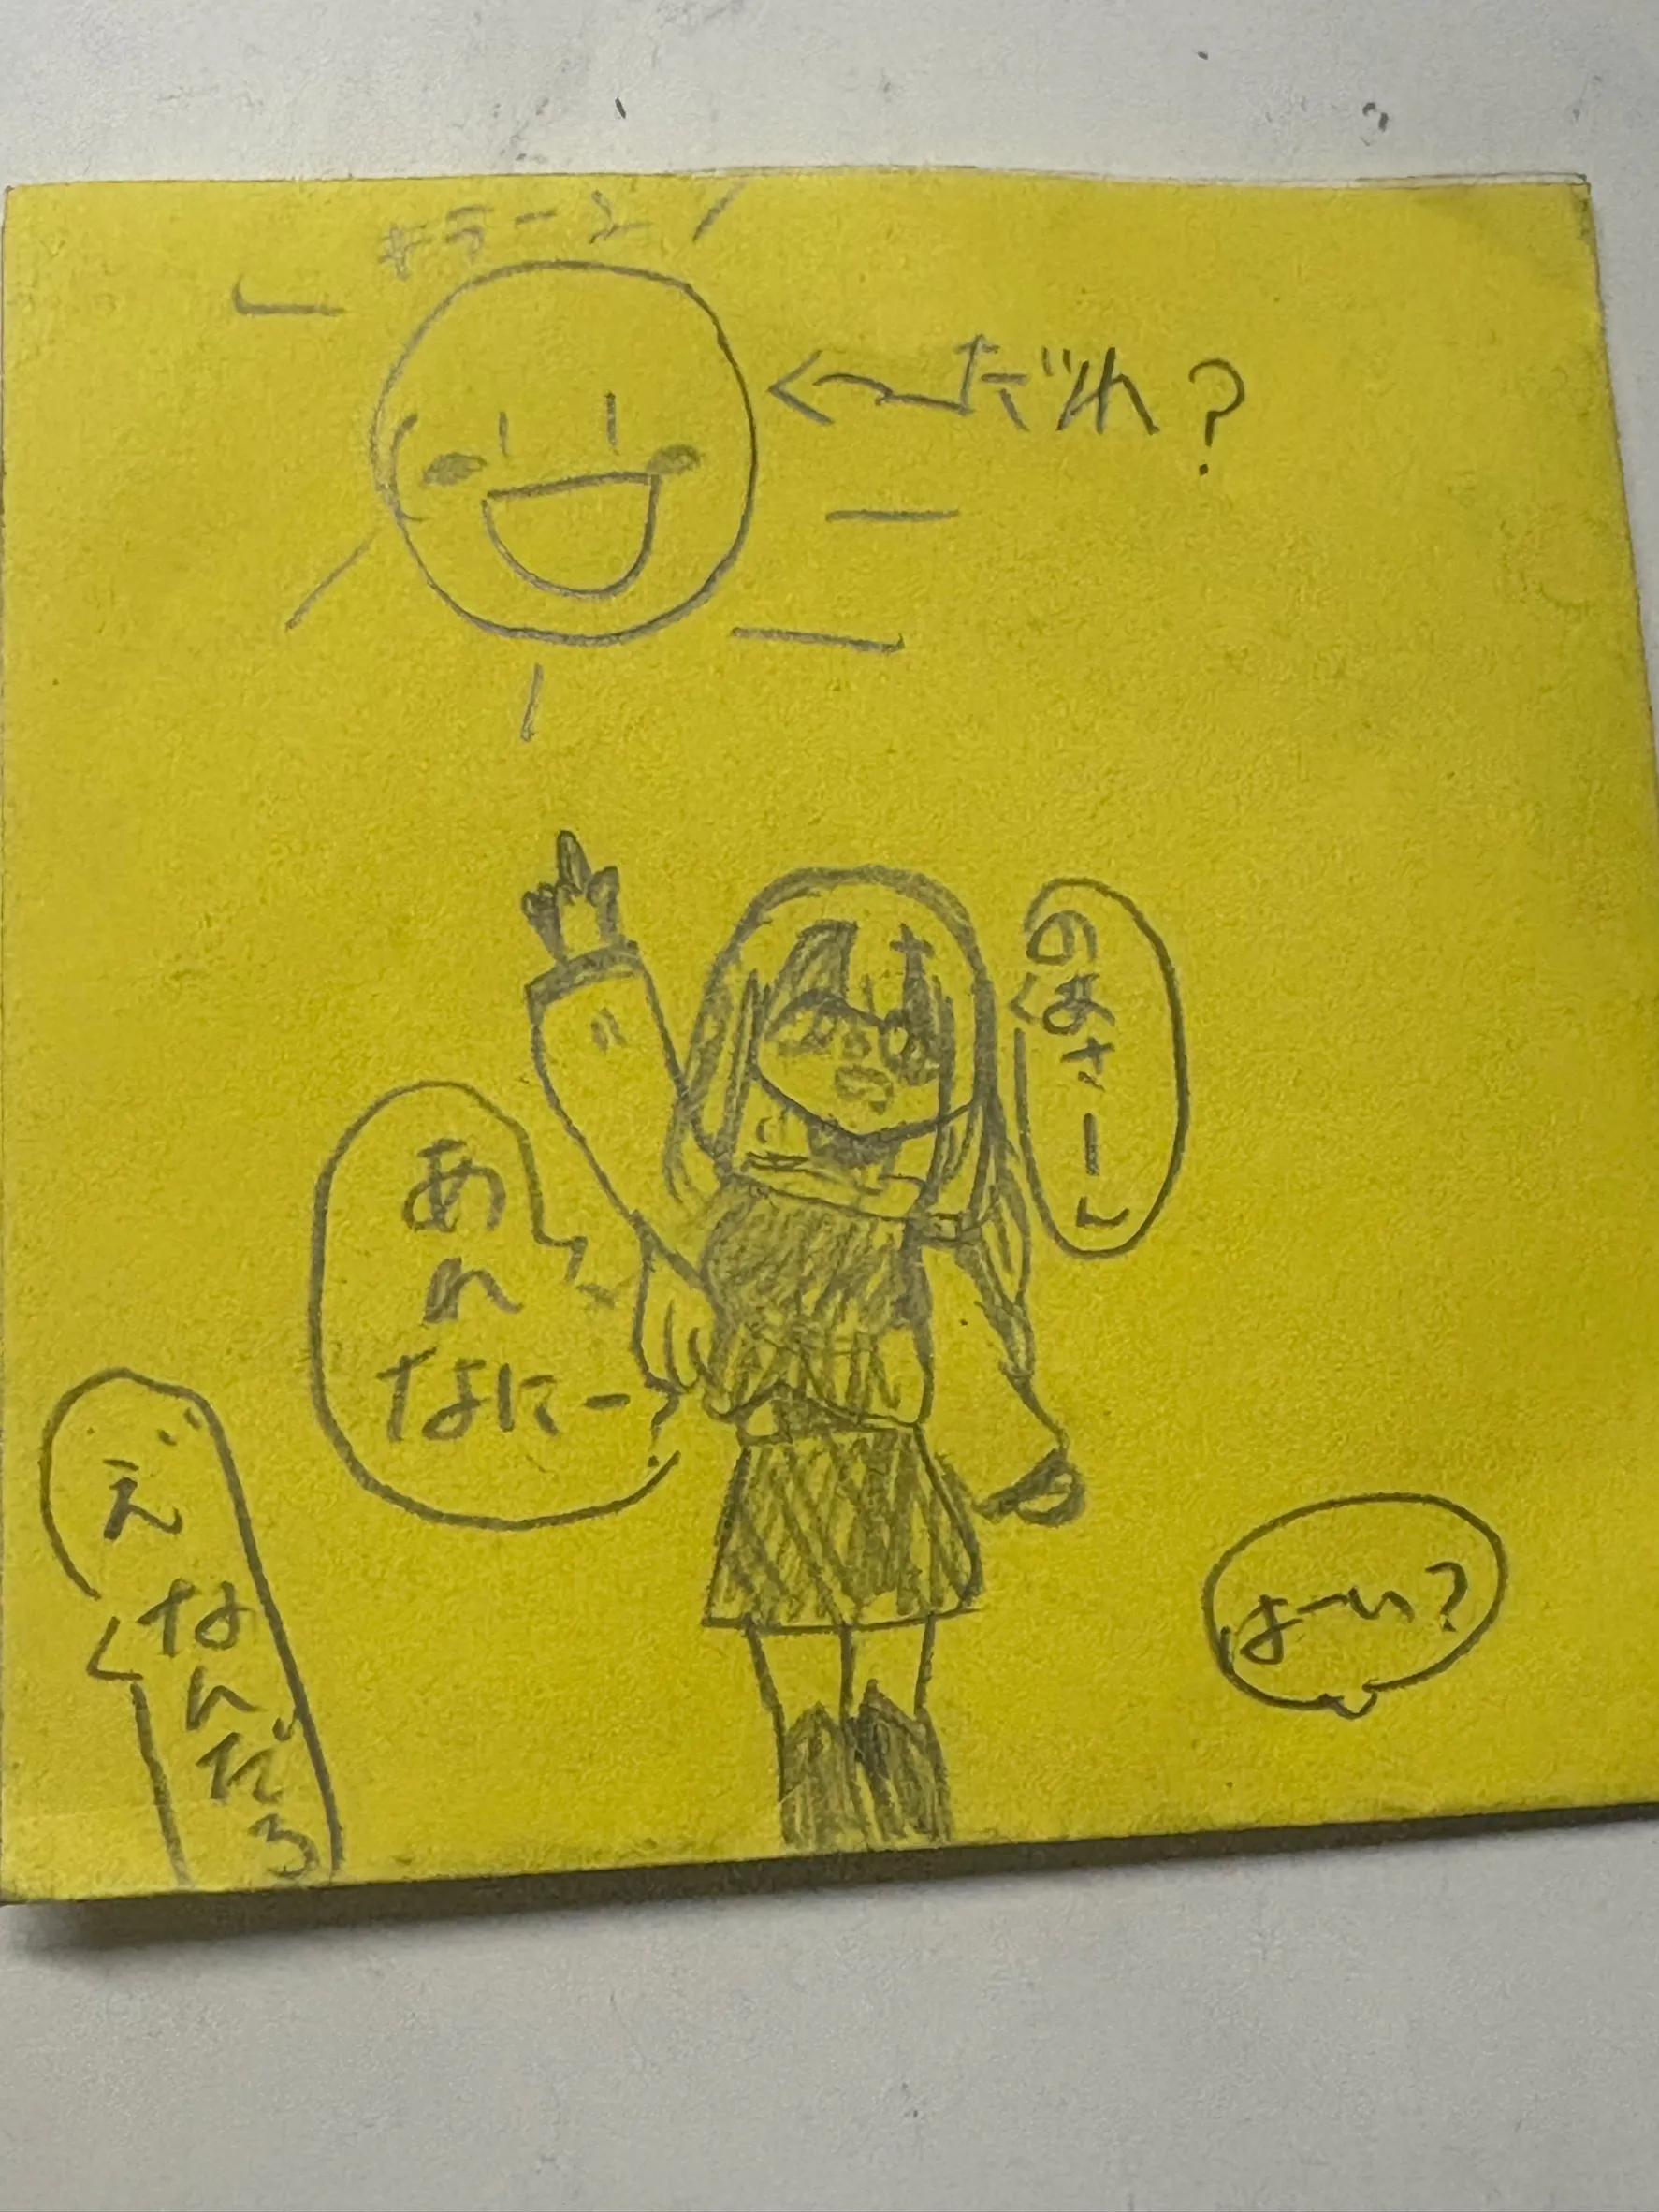 キラーン
←だれ?
のあさーん
あれ
なにー?
え なんだろ
よーい?